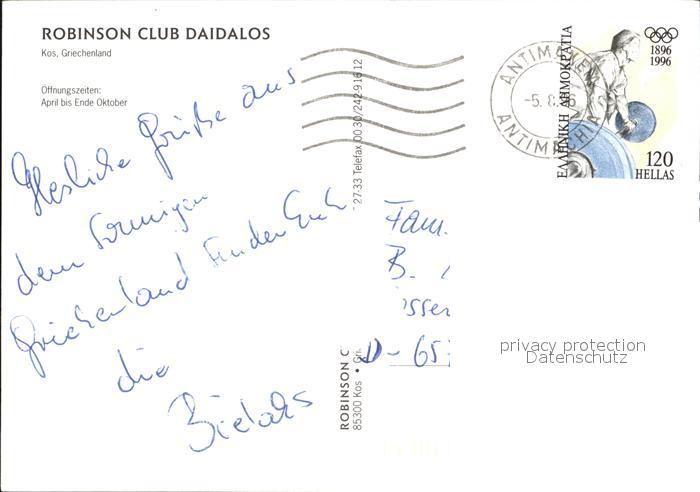 ROBINSON CLUB DAIDALOS
Kos, Griechenland
Öffnungszeiten:
April bis Ende Oktober
Herzliche Grüße aus
dem sonnigen
Griechenland senden Euch
die
27-33 Telefax 00 30/242-9 16 12
ROBINSON C
85300 Kos • Gri
Fam.
B.
sser
D-65
ANTIMACHIA
-5.8.96
ΕΛΛΗΝΙΚΗ ΔΗΜΟΚΡΑΤΙΑ
1896
1996
120
HELLAS
privacy protection
Datenschutz